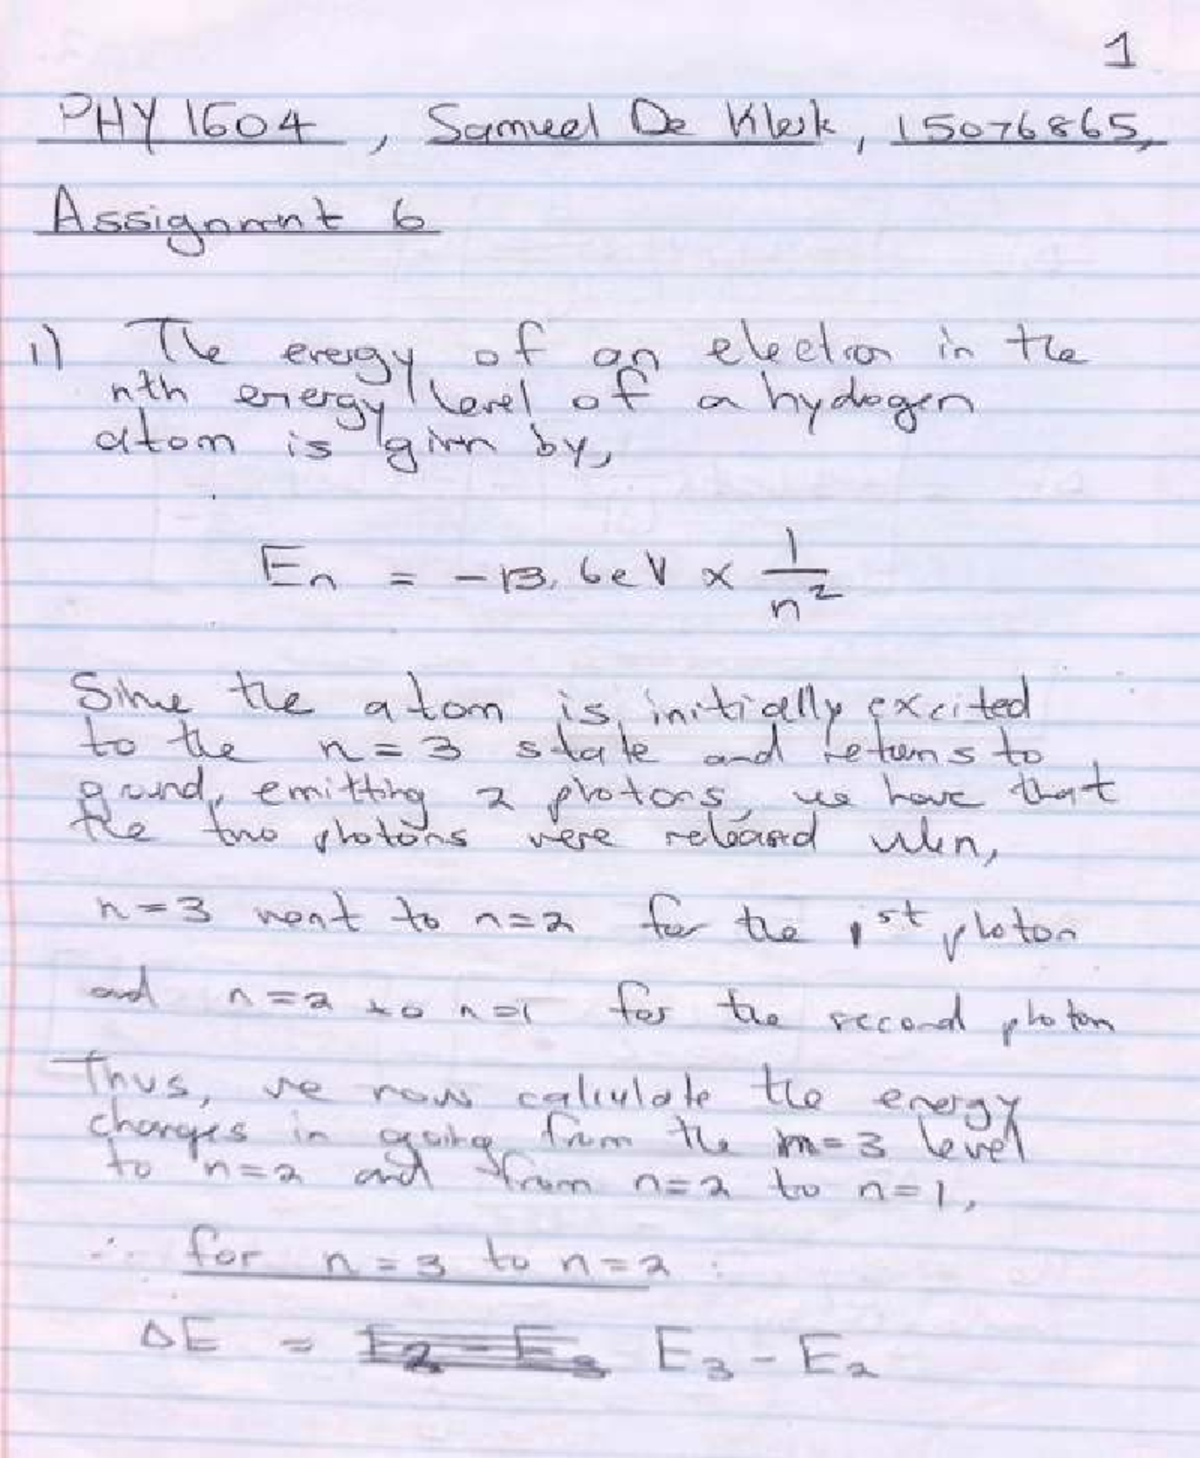 1
PHY 1604, Samuel De Klerk, 15076865,
Assignment 6
1) The energy of an electron in the
nth energy level of a hydrogen
atom is given by,
En = -13.6eV × 1/n²
Since the atom is initially excited
to the n=3 state and returns to
ground, emitting 2 photons, we have that
the two photons were released when,
n=3 went to n=2 for the 1st photon
and n=2 to n=1 for the second photon
Thus, we now calculate the energy
changes in going from the n=3 level
to n=2 and from n=2 to n=1,
∴ for n=3 to n=2:
ΔE = E2 - E3 E3 - E2